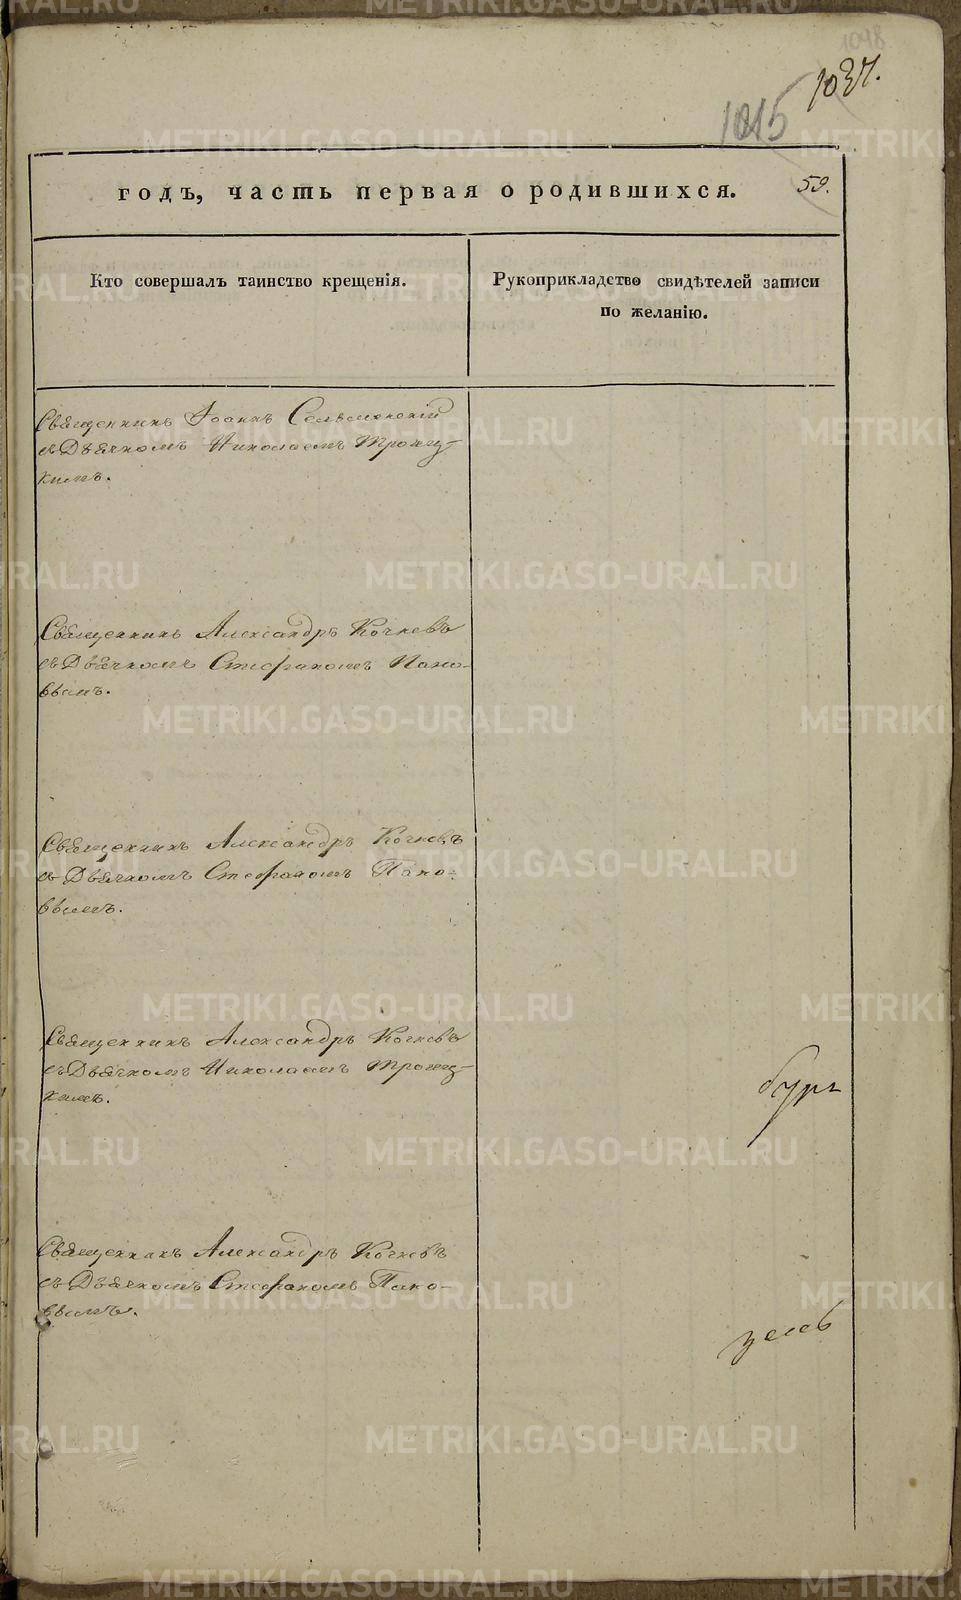 1048
1037.
1015
годъ, часть первая о родившихся.
59.
Кто совершалъ таинство крещенія.
Рукоприкладство свидѣтелей записи
по желанію.
Священникъ Іоаннъ Сельменскій
съ Дьячкомъ Николаемъ Троиц-
кимъ.
Священникъ Александръ Кочневъ
съ Дьячкомъ Стефаномъ Пано-
вымъ.
Священникъ Александръ Кочневъ
съ Дьячкомъ Стефаномъ Пано-
вымъ.
Священникъ Александръ Кочневъ
съ Дьячкомъ Николаемъ Троиц-
кимъ.
Священникъ Александръ Кочневъ
съ Дьячкомъ Стефаномъ Пано-
вымъ.
METRIKI.GASO-URAL.RU